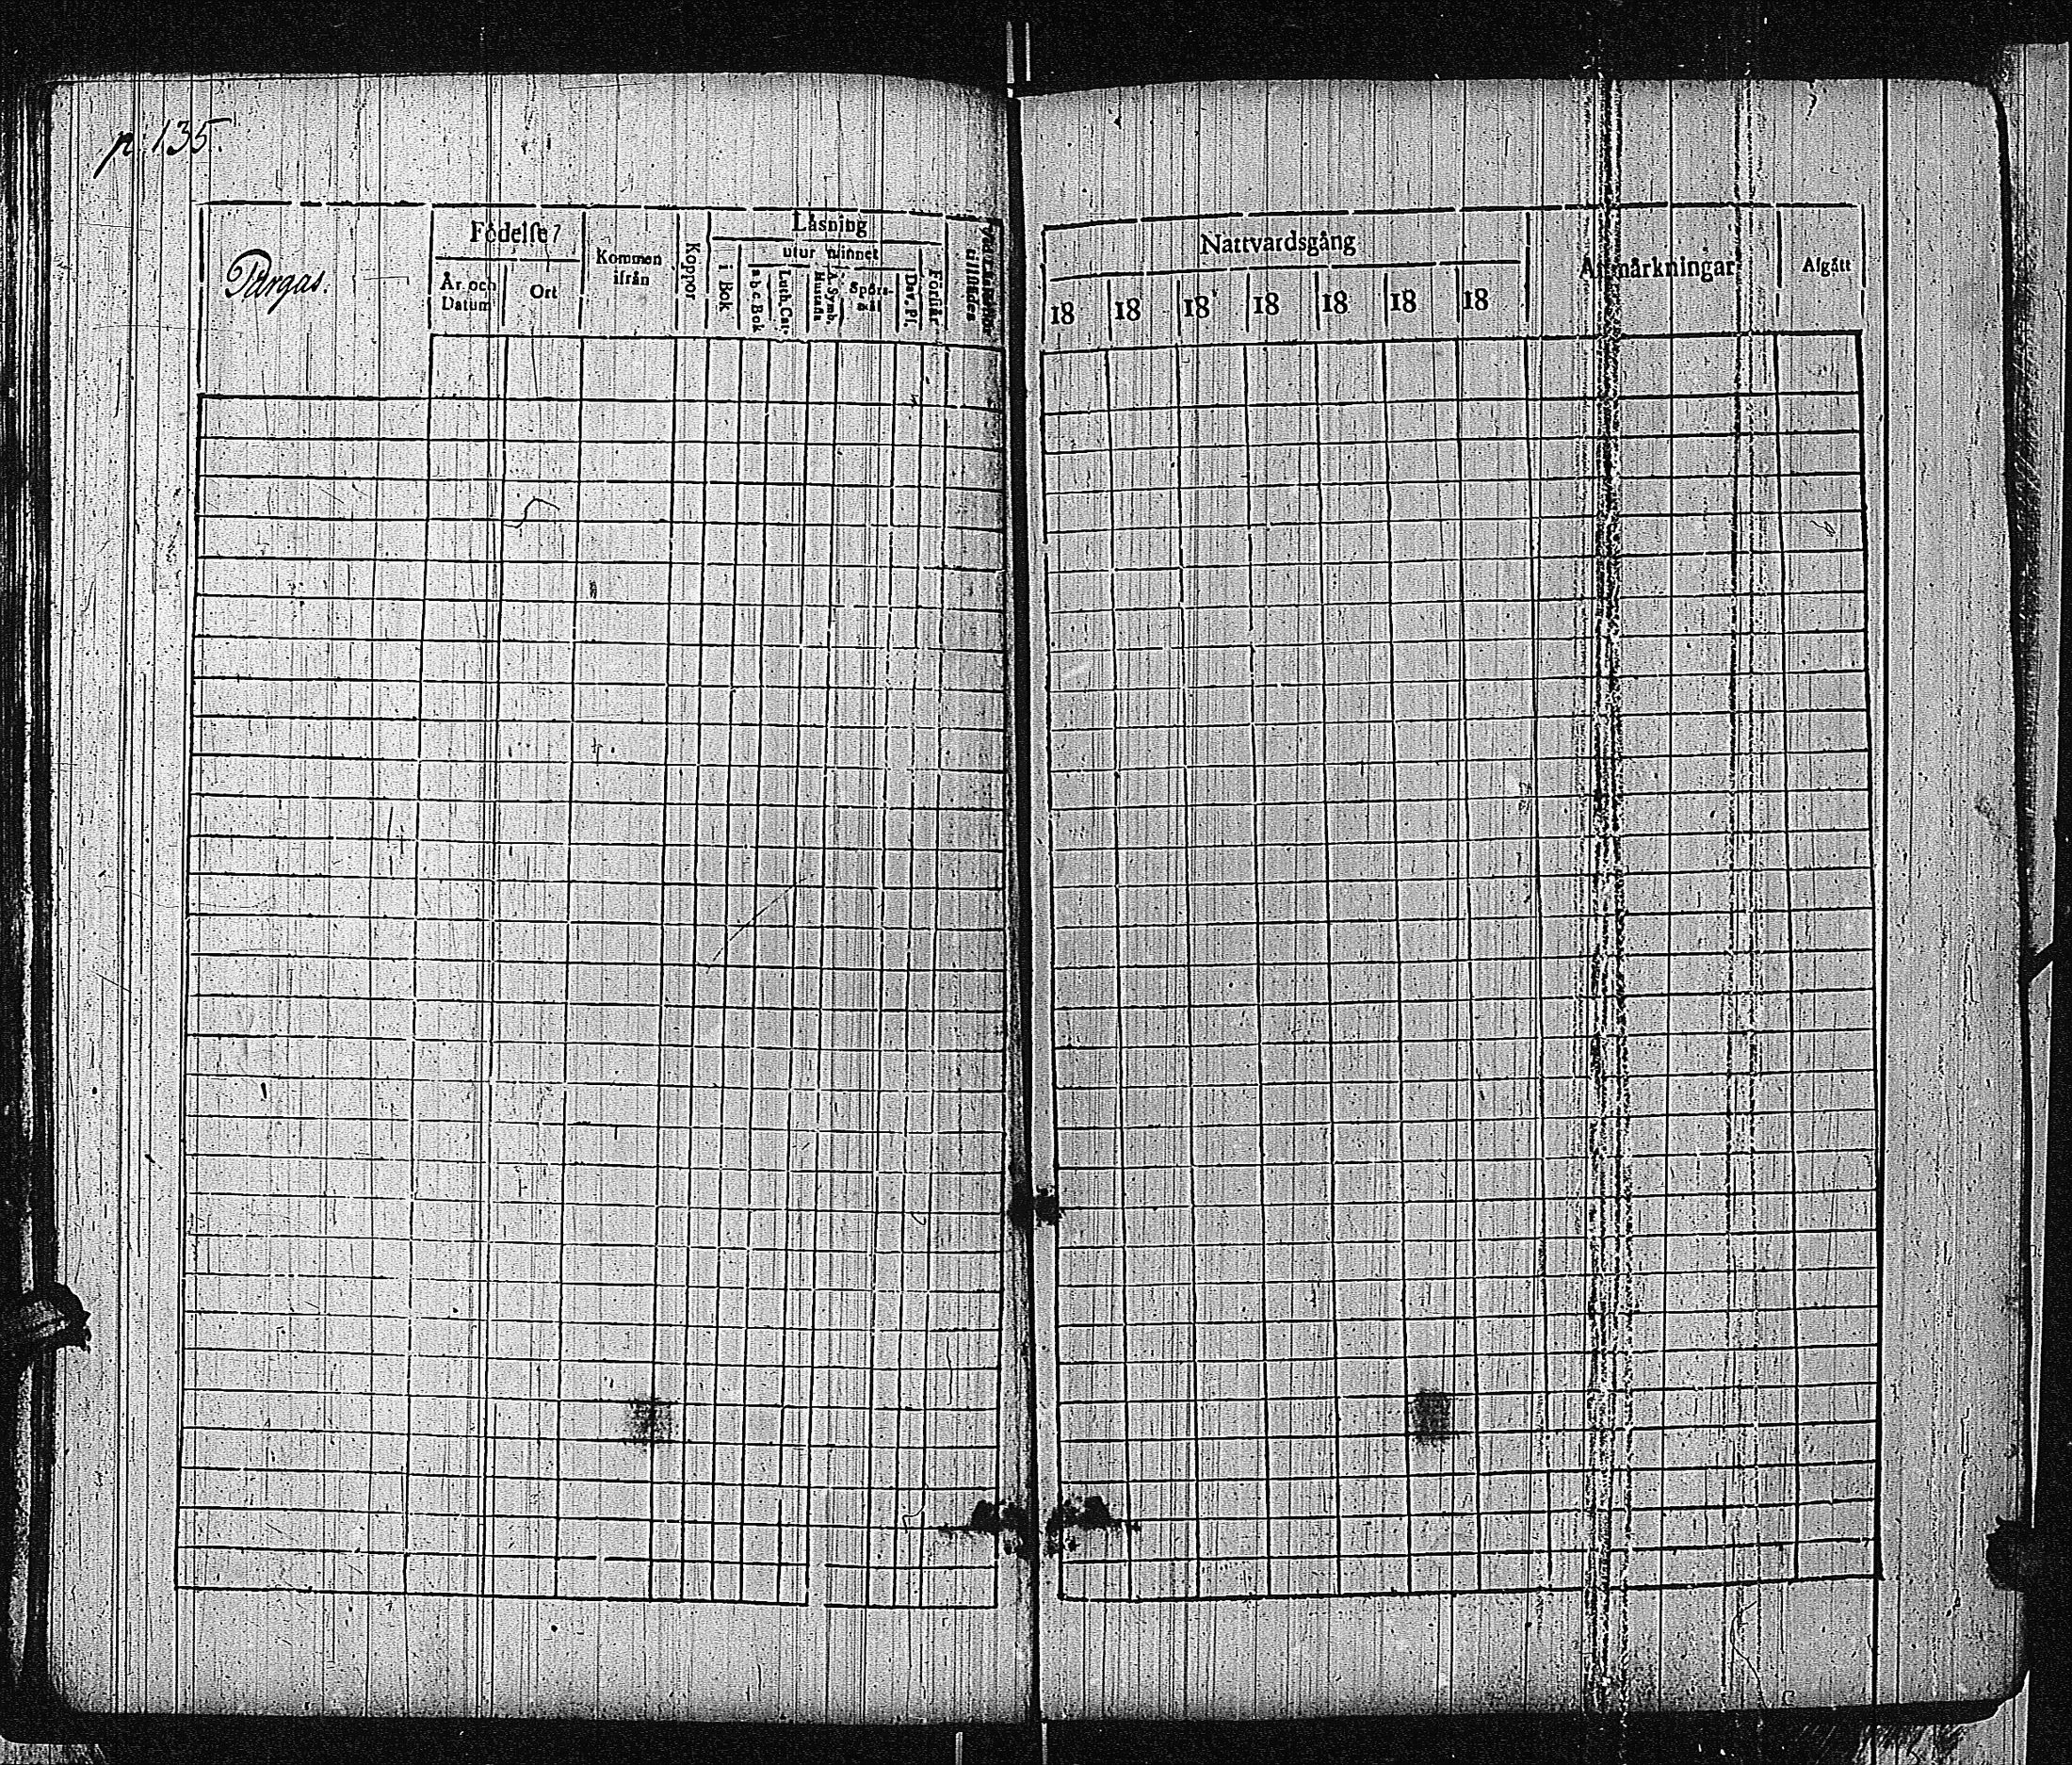 p. 135.
Pargas.
Födelse
År och Datum
Ort
Kommen ifrån
Koppor
Läsning
i Bok
utur minnet
a b c Bok
Luth. Cat.
Hustafla
A. Symb.
Spörsmål
Dav. Ps.
Förstår
Nattvardsgång
18 18 18 18 18 18 18
Anmärkningar
Afgått